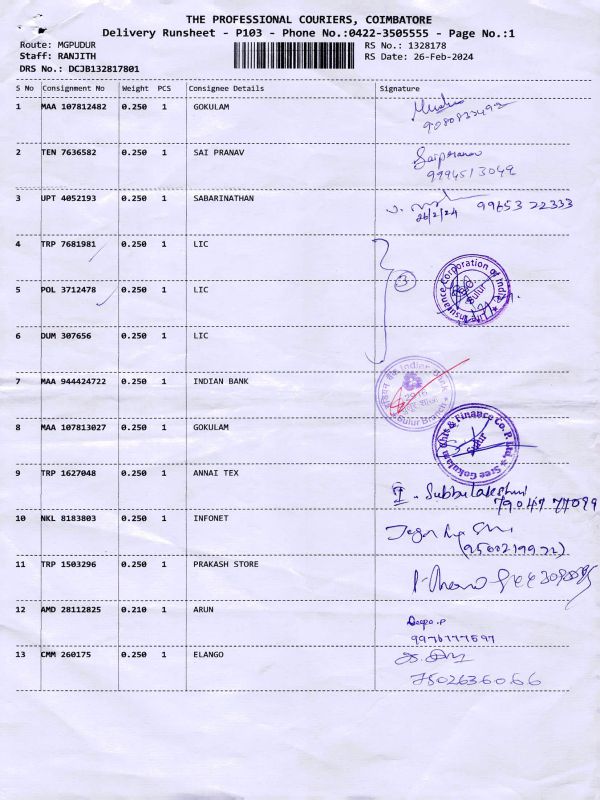 THE PROFESSIONAL COURIERS, COIMBATORE
Delivery Runsheet - P103 - Phone No.:0422-3505555 - Page No.:1
Route: MGPUDUR RS No.: 1328178
Staff: RANJITH RS Date: 26-Feb-2024
DRS No.: DCJB132817801
S No Consignment No Weight PCS Consignee Details Signature
1 MAA 107812482 0.250 1 GOKULAM
2 TEN 7636582 0.250 1 SAI PRANAV Saipranav
9994513049
3 UPT 4052193 0.250 1 SABARINATHAN 99653 22333
26/2/24
4 TRP 7681981 0.250 1 LIC
Life Insurance Corporation of India
Sulur
5 POL 3712478 0.250 1 LIC 3
6 DUM 307656 0.250 1 LIC
7 MAA 944424722 0.250 1 INDIAN BANK
Indian Bank
Sulur Branch
8 MAA 107813027 0.250 1 GOKULAM
Sree Gokulam Chit & Finance Co. P. Ltd.
Sulur
9 TRP 1627048 0.250 1 ANNAI TEX
10 NKL 8183803 0.250 1 INFONET
11 TRP 1503296 0.250 1 PRAKASH STORE
12 AMD 28112825 0.210 1 ARUN Deepa.P
13 CMM 260175 0.250 1 ELANGO
7502636066